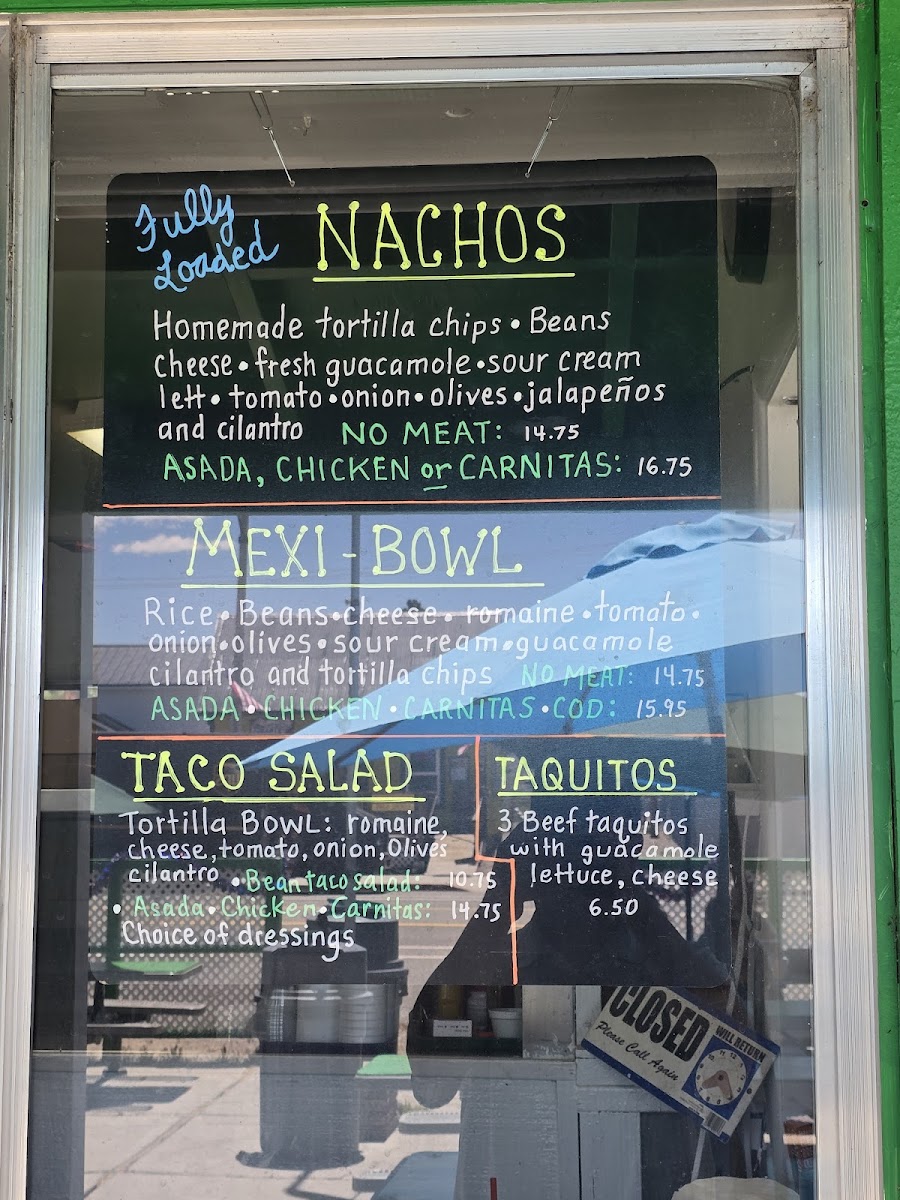 Fully
Loaded
NACHOS
Homemade tortilla chips • Beans
cheese • fresh guacamole • sour cream
lett • tomato • onion • olives • jalapeños
and cilantro NO MEAT: 14.75
ASADA, CHICKEN or CARNITAS: 16.75
MEXI-BOWL
Rice • Beans • cheese • romaine • tomato •
onion • olives • sour cream • guacamole
cilantro and tortilla chips NO MEAT: 14.75
ASADA • CHICKEN • CARNITAS • COD: 15.95
TACO SALAD
Tortilla BOWL: romaine,
cheese, tomato, onion, Olives
cilantro • Bean taco salad: 10.75
• Asada • Chicken • Carnitas: 14.75
Choice of dressings
TAQUITOS
3 Beef taquitos
with guacamole
lettuce, cheese
6.50
CLOSED
Please Call Again
WILL RETURN